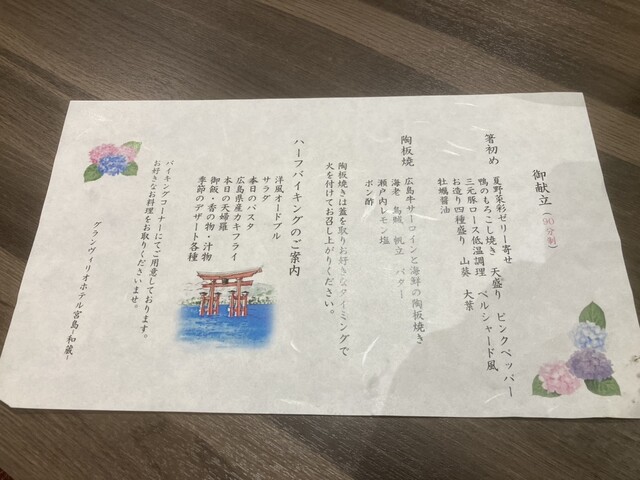 御献立
箸初め
夏野菜彩ゼリー寄せ
鴨のもろこし焼き 天盛り ピンクペッパー
三元豚ロース低温調理 ベルシャード風
お造り四種盛り 山葵 大葉
牡蠣醤油
陶板焼
広島牛サーロインと海鮮の陶板焼き
海老 烏賊 帆立 バター
瀬戸内レモン塩
ポン酢
陶板焼きは蓋を取りお好きなタイミングで
火を付けてお召し上がりください。
ハーフバイキングのご案内
洋風オードブル
サラダ
本日のパスタ
広島県産カキフライ
本日の天婦羅
御飯・香の物・汁物
季節のデザート各種
バイキングコーナーにてご用意しております。
お好きなお料理をお取りくださいませ。
グランヴィリオホテル宮島-和蔵-